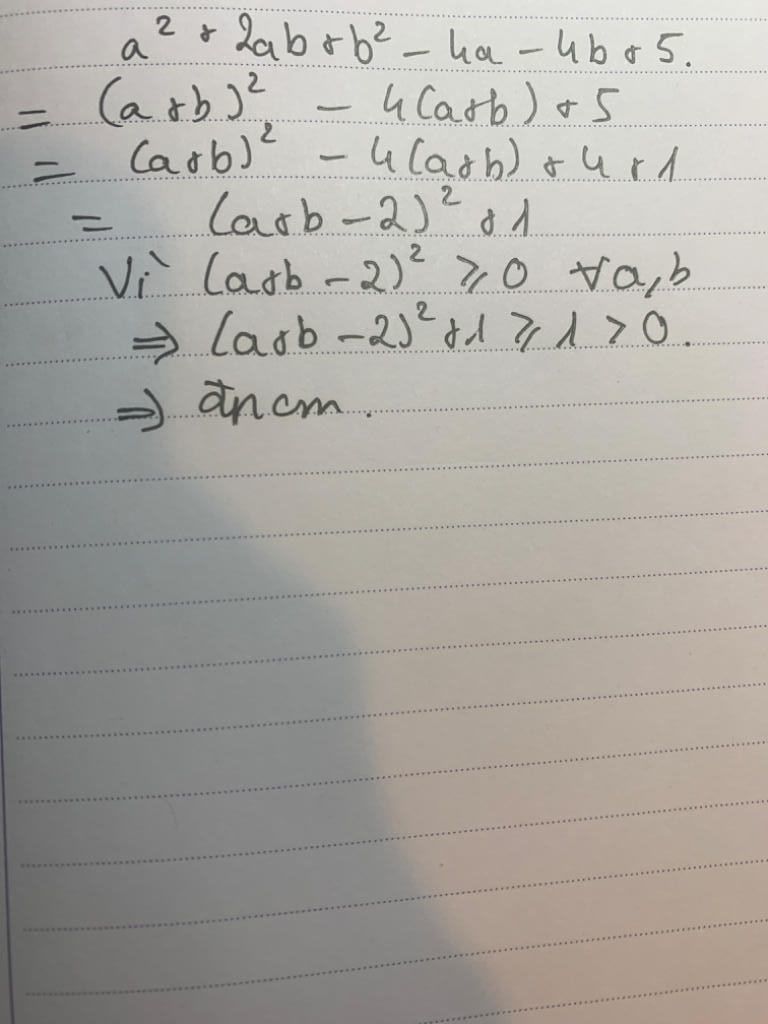 a² + 2ab + b² - 4a - 4b + 5.
= (a+b)² - 4(a+b) + 5
= (a+b)² - 4(a+b) + 4 + 1
= (a+b - 2)² + 1
Vì (a+b - 2)² ⩾ 0 ∀a,b
⇒ (a+b - 2)² + 1 ⩾ 1 > 0.
⇒ đpcm.